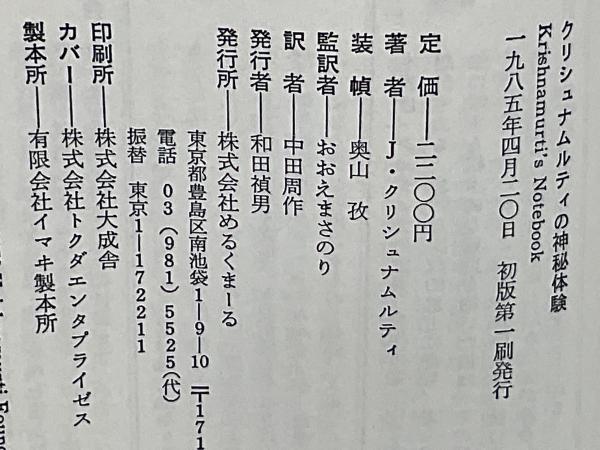 クリシュナムルティの神秘体験
Krishnamurti's Notebook
一九八五年四月二〇日 初版第一刷発行
定価──二二〇〇円
著者──J・クリシュナムルティ
装幀──奥山 孜
監訳者──おおえまさのり
訳者──中田周作
発行者──和田禎男
発行所──株式会社めるくまーる
東京都豊島区南池袋1―9―10 〒171
電話 03(981)5525(代)
振替 東京1―172211
印刷所──株式会社大成舎
カバー──株式会社トクダエンタプライゼス
製本所──有限会社イマヰ製本所